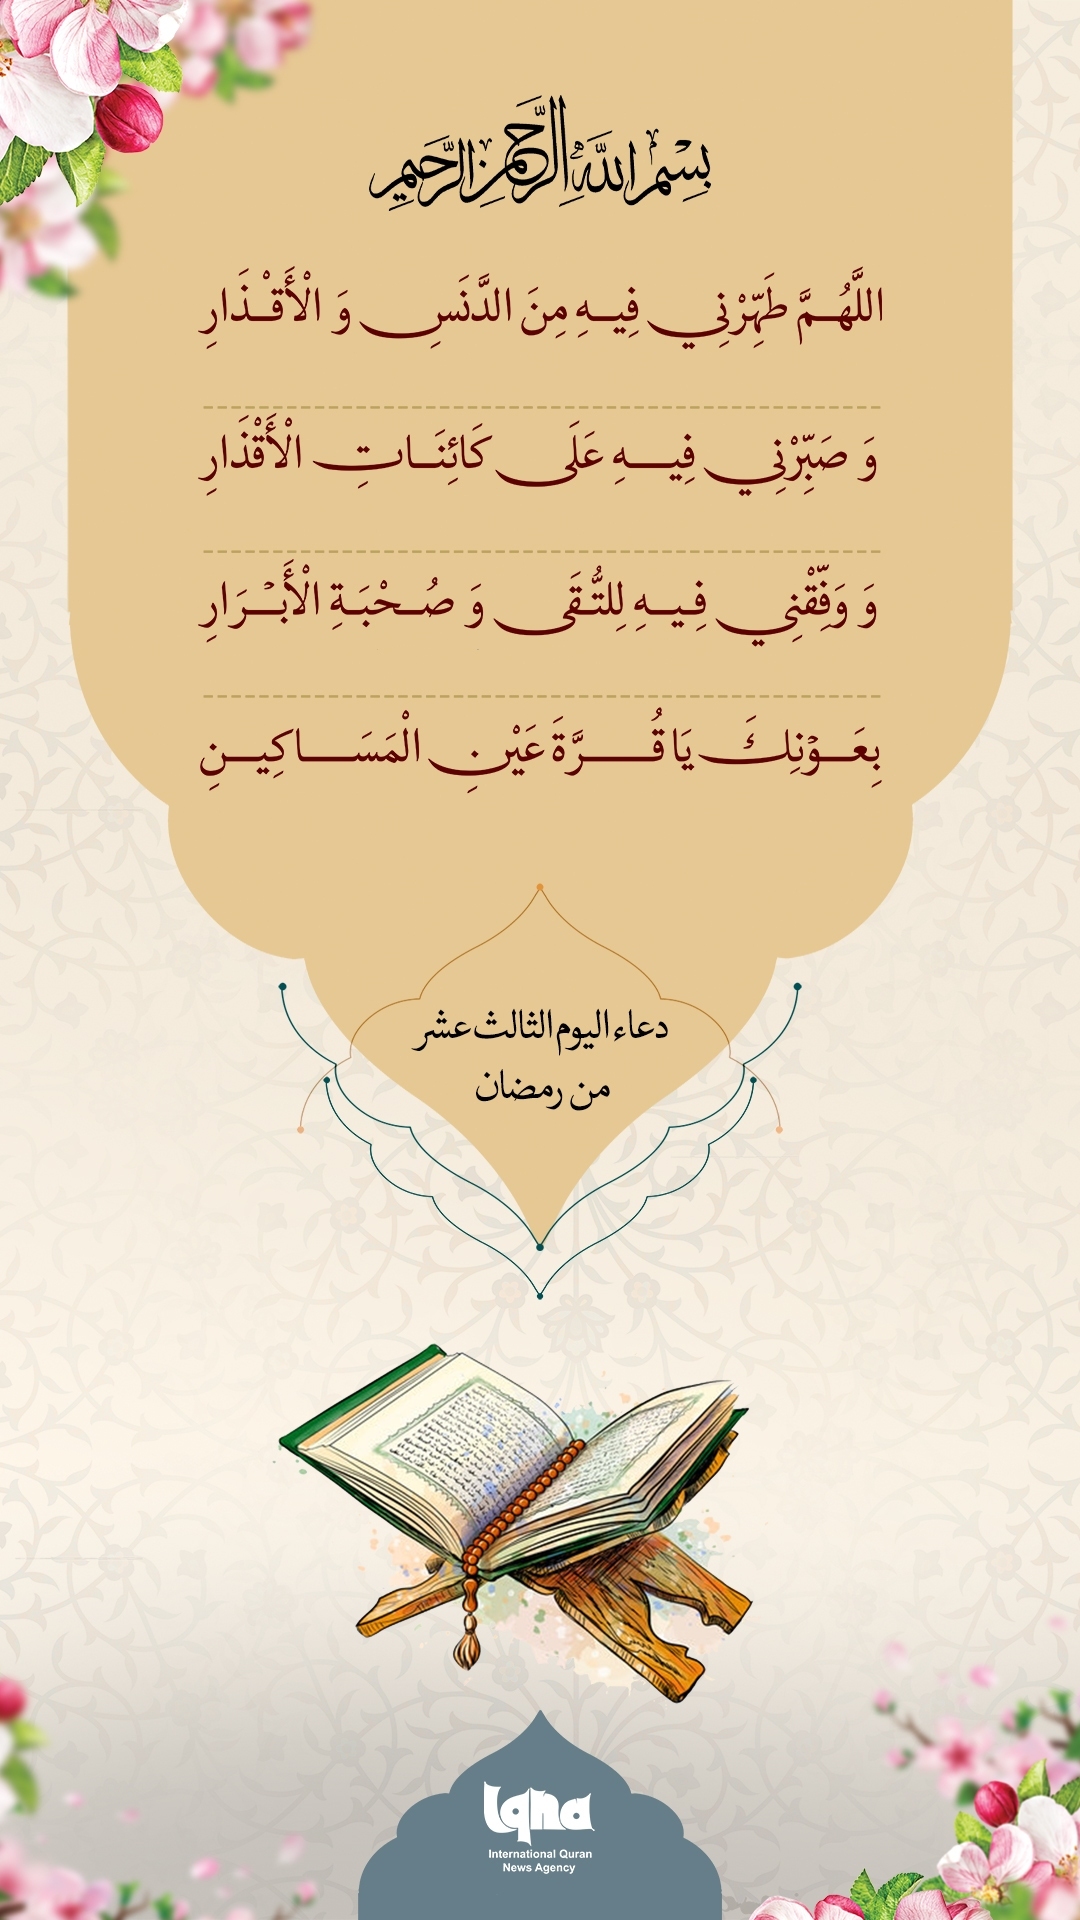 بِسْمِ اللَّهِ الرَّحْمنِ الرَّحِيمِ
اللَّهُمَّ طَهِّرْنِي فِيهِ مِنَ الدَّنَسِ وَ الْأَقْذَارِ
وَ صَبِّرْنِي فِيهِ عَلَى كَائِنَاتِ الْأَقْذَارِ
وَ وَفِّقْنِي فِيهِ لِلتُّقَى وَ صُحْبَةِ الْأَبْرَارِ
بِعَوْنِكَ يَا قُرَّةَ عَيْنِ الْمَسَاكِينِ
دعاء اليوم الثالث عشر
من رمضان
Iqna
International Quran
News Agency